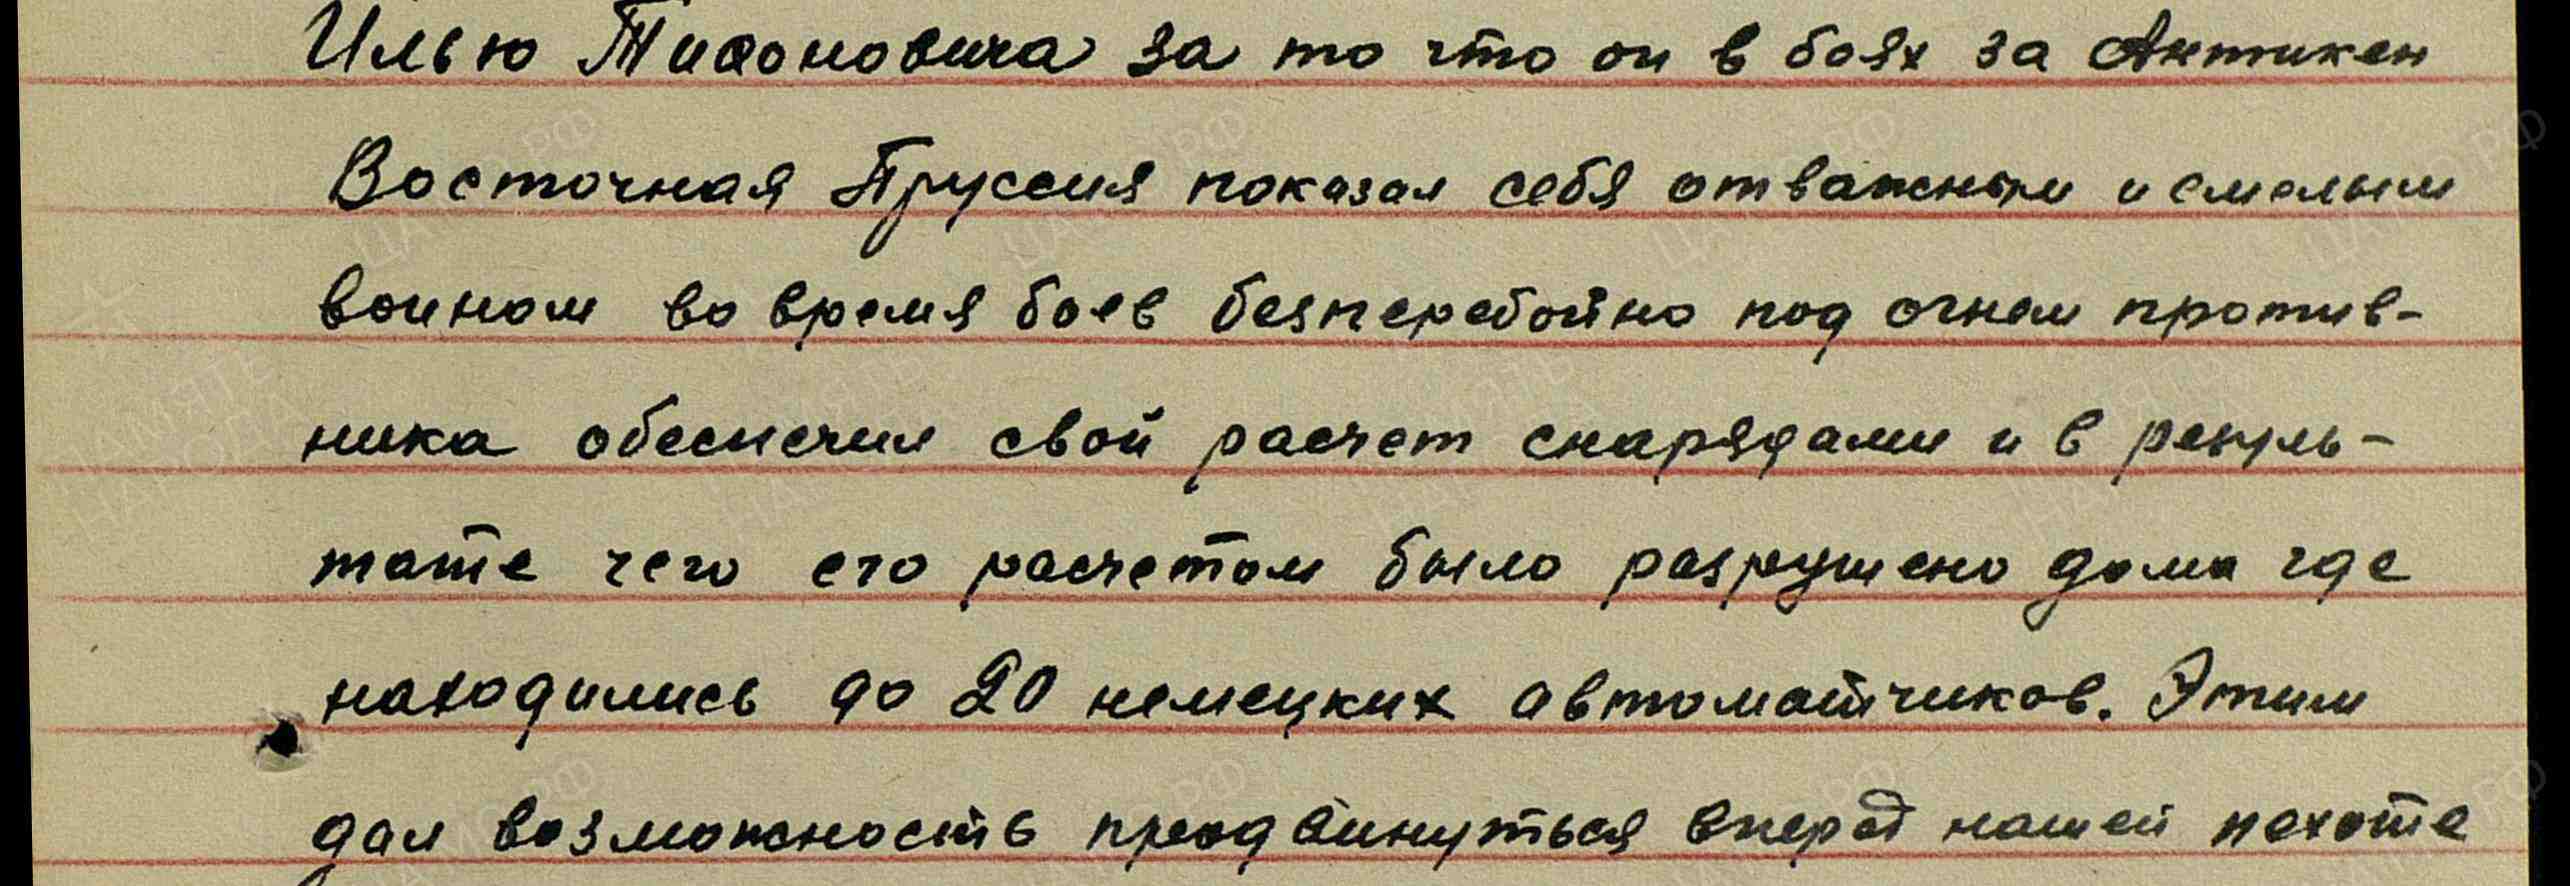 Илью Тифоновича за то что он в боях за Антикен
Восточная Пруссия показал себя отважным и смелым
воином во время боев безперебойно под огнем против-
ника обеспечил свой расчет снарядами и в резуль-
тате чего его расчетом было разрушено дома где
находились до 20 немецких автоматчиков. Этим
дал возможность продвинуться вперед нашей пехоте